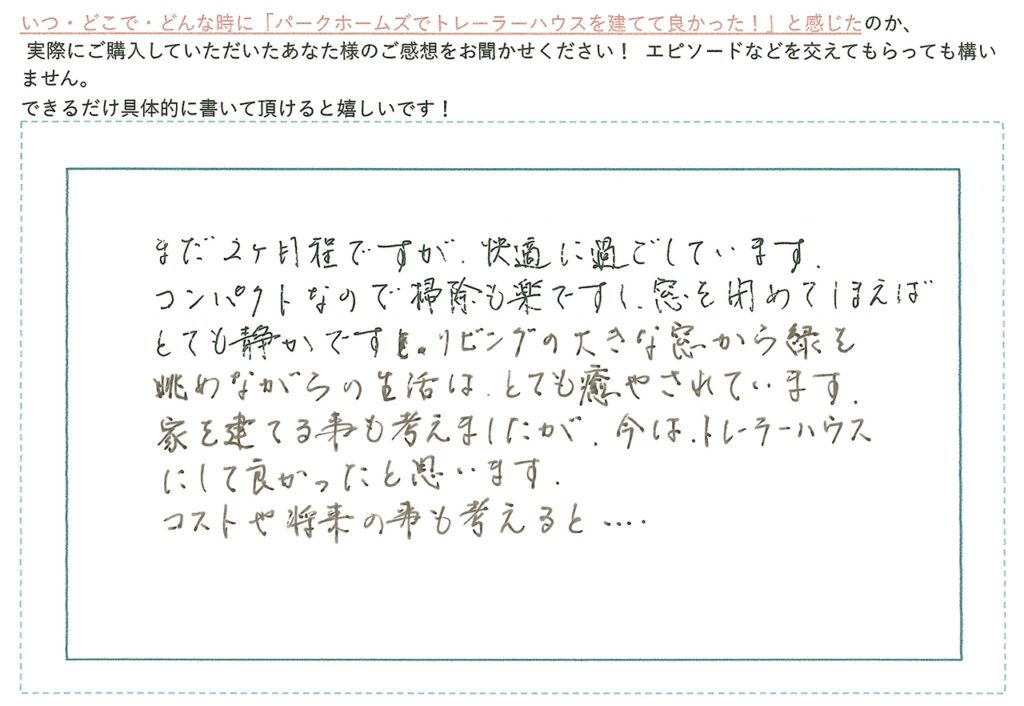 いつ・どこで・どんな時に「パークホームズでトレーラーハウスを建てて良かった！」と感じたのか、
実際にご購入していただいたあなた様のご感想をお聞かせください！ エピソードなどを交えてもらっても構い
ません。
できるだけ具体的に書いて頂けると嬉しいです！
まだ2ヶ月程ですが、快適に過ごしています.
コンパクトなので掃除も楽ですし、窓を閉めてしまえば
とても静かです。リビングの大きな窓から緑を
眺めながらの生活は、とても癒やされています.
家を建てる事も考えましたが、今は、トレーラーハウス
にして良かったと思います.
コストや将来の事も考えると‥‥